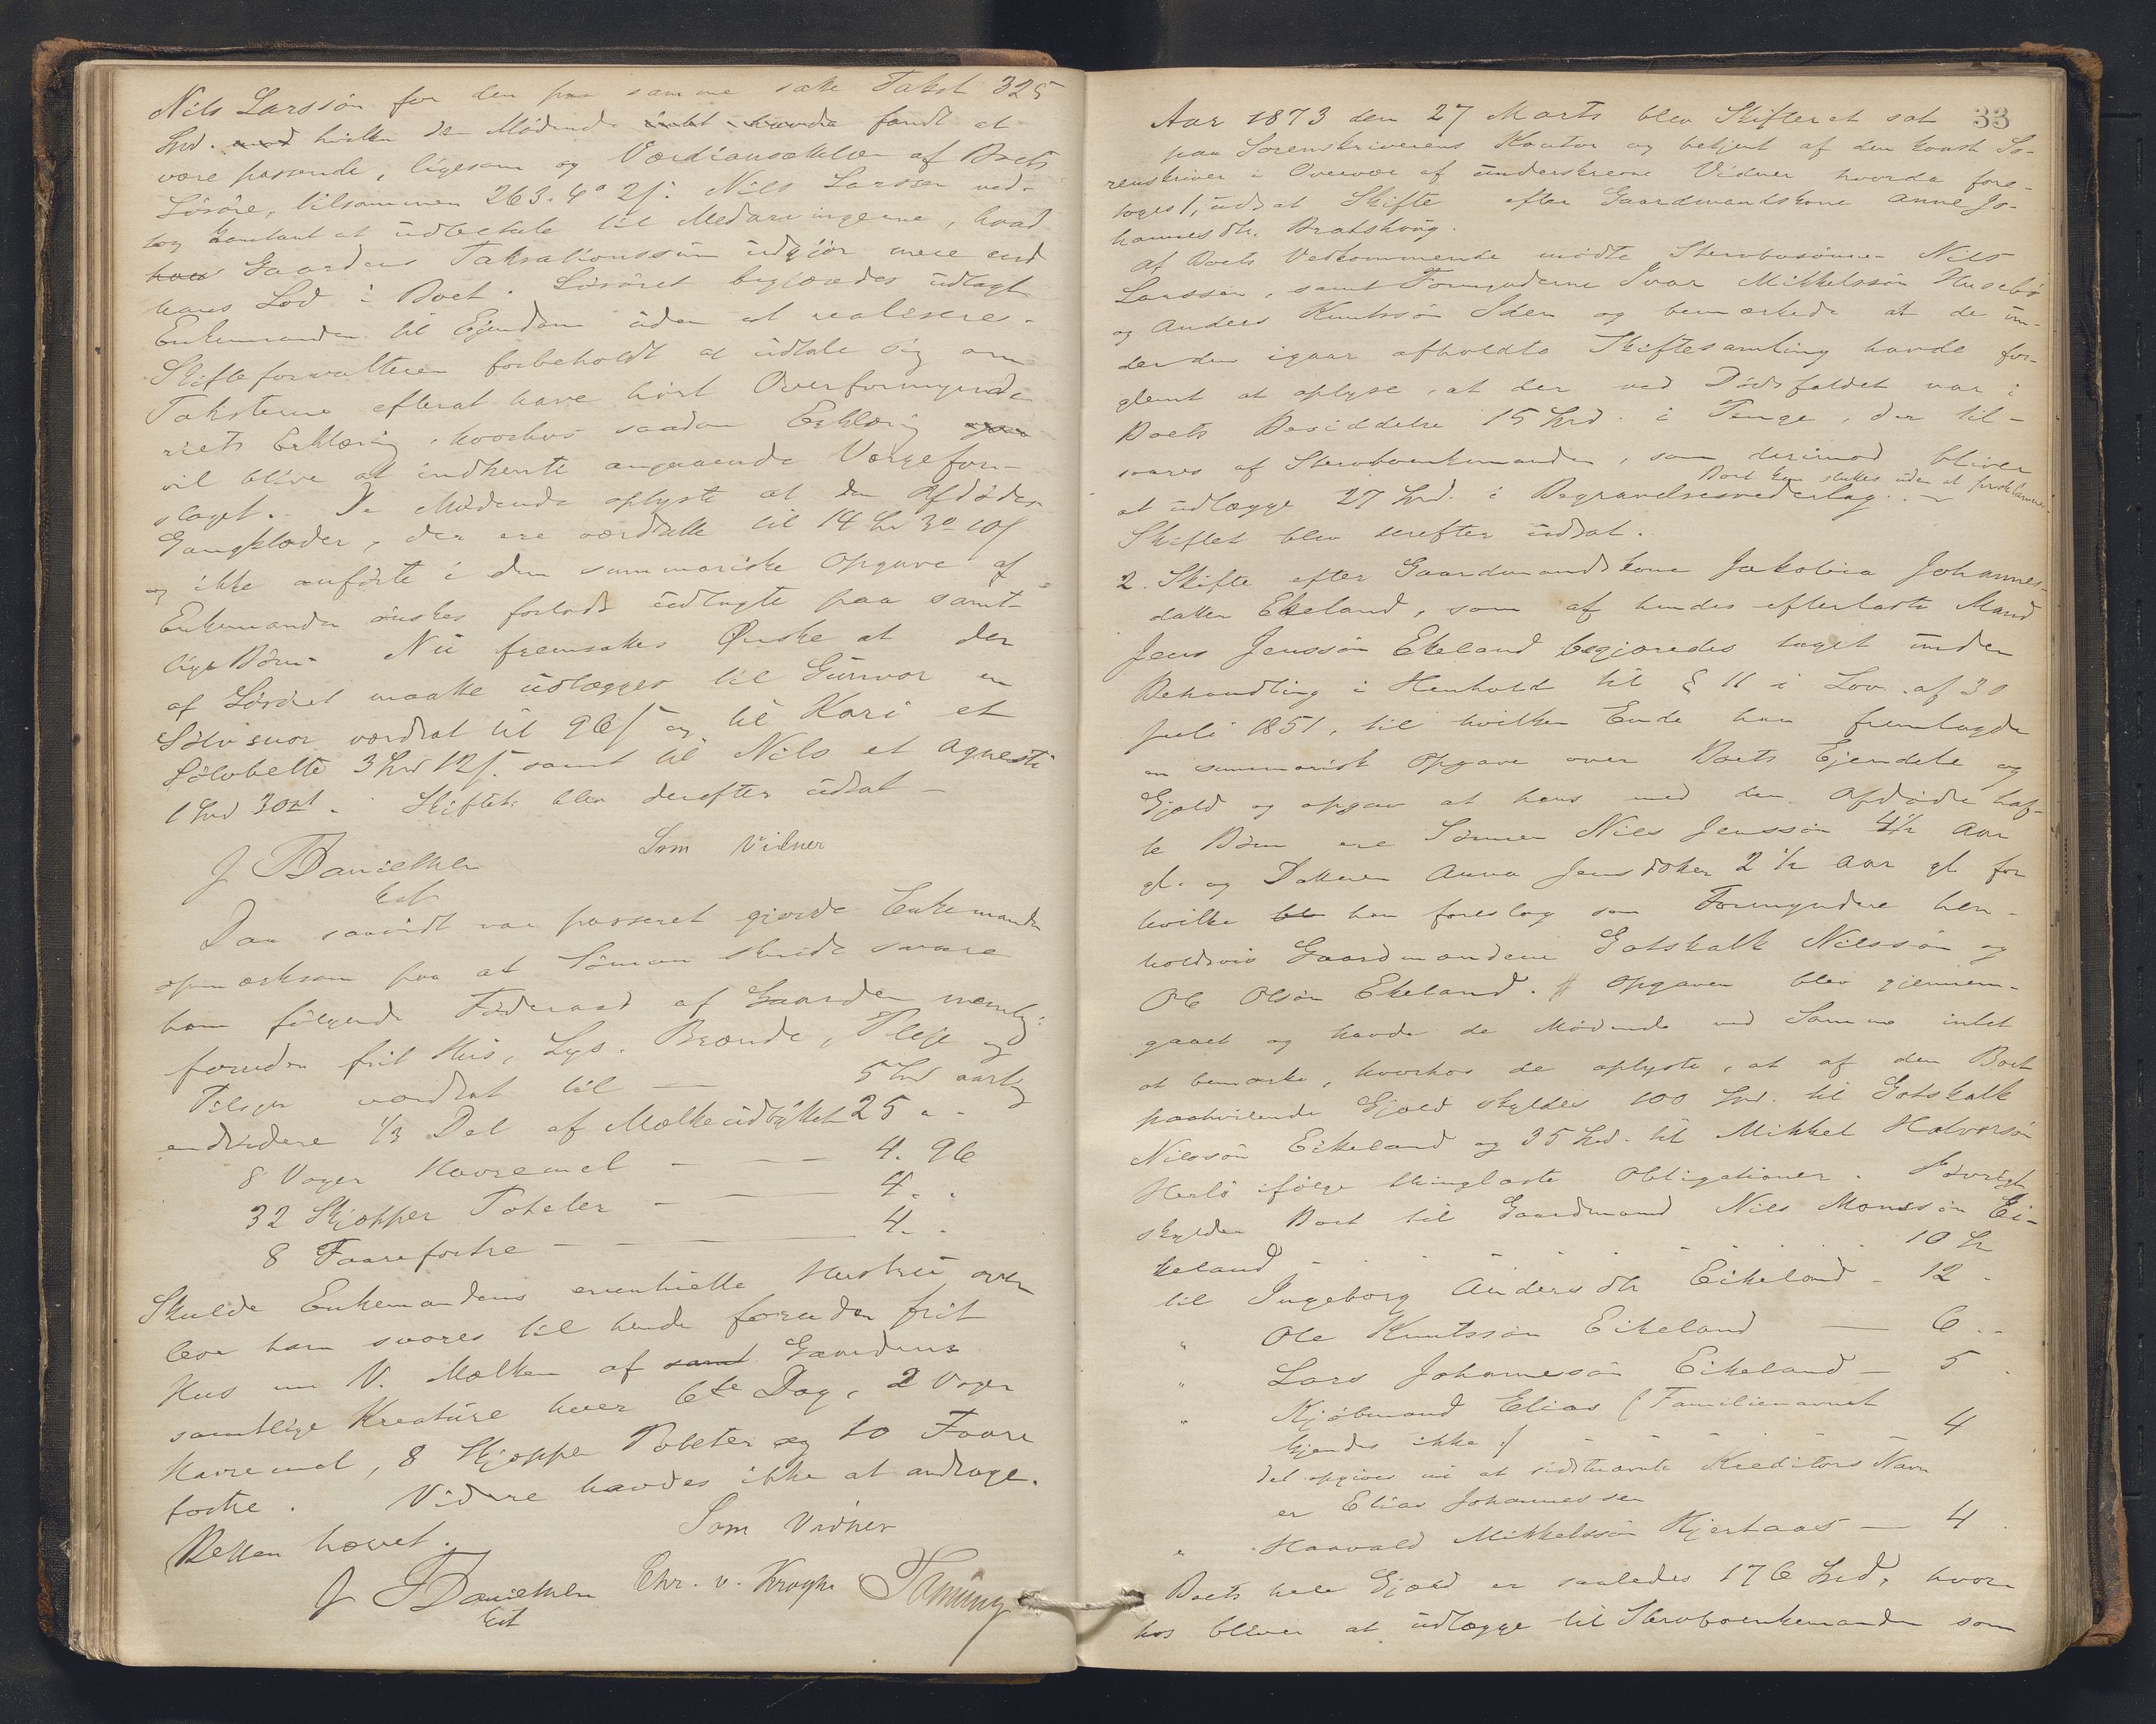 Nils Larssøn for den paa samme satte Takst 325
Spd. med hvilken de Mødende intet havde fandt at
være passende, ligesom og Værdiansættelsen af Boets
Løsøre, tilsammen 263. 4 o 2 s: Nils Larssen ved-
tog kontant at udbetale til Medarvingerne, hvad
han Gaardens Taksationssum udgjør mere end
hans Lod i Boet. Løsøret begjæredes udlagt
Enkemanden til Ejendom uden at realiseres.
Skifteforvalteren forbeholdt at udtale sig om
Taksterne efterat have hørt Overformynde-
riets Erklæring, hvorhos saadan Erklæring
vil blive at indhente angaaende Værgefor-
slaget. De Mødende oplyste at den Afdødes
Gangklæder, der ere værdsatte til 14 Spd 3 o 10 s
og ikke anførte i den summariske Opgave af
Enkemanden ønskes forlods udlagte paa samt-
lige Børn. Nu fremsattes Ønske at der
af Løsøret maatte udlægges til Gunvor en
Sølvsnor værdsat til 96 s og til Kari et
Sølvbelte 3 Spd 12 s. samt til Nils et
1 Spd 30 s. Skiftet blev derefter udsat -
Som Vidner
J J Danielsen
kst
Daa saavidt var passeret gjorde Enkemanden
opmærksom paa at Sønnen skulde svare
ham følgende Føderaad af Gaarden nemlig:
foruden frit Hus, Lys, Brænde, Pleje og
Tilsyn værdsat til — 5 Spd aarlig
endvidere 1/3 Del af Mælkeudbyttet 25 " -
8 Voger Havremel - — — 4. 96
32 Skjæpper Poteter - — — 4 " .
8 Faarefostre — — — 4. .
Skulde Enkemandens eventuelle Hustru over-
leve ham svares til hende foruden frit
Hus m V. Mælken af samt Gaardens
samtlige Kreature hver 6te Dag, 2 Voger
Havremel, 8 Skjæpper Poteter og 10 Faare
fostre. Videre havdes ikke at andrage.
Retten hævet.
Som Vidner
J J Danielsen Chr. v. Krogh
kst
33
Aar 1873 den 27 Marts blev Skifteret sat
paa Sorenskriverens Kontor og betjent af den konst. So-
renskriver i Overvær af underskrevne Vidner hvorda fore-
toges 1, udsat Skifte efter Gaardmandskone Anne Jo-
hannesdtr. Bratshoug.
Af Boets Vedkommende mødte Stervbosønnen Nils
Larssen, samt Formynderne Ivar Mikkelssøn Husebø
og Anders Knutssøn Iden og bemærkede at de un-
der den igaar afholdte Skiftesamling havde for-
glemt at oplyse, at der ved Dødsfaldet var i
Boets Besiddelse 15 Spd. i Penge, der til-
svares af Stervboenkemanden, som derimod bliver
Boet kan sluttes uden at proklameres.
at udlægge 27 Spd. i Begravelsesvederlag. -
Skiftet blev derefter udsat.
2. Skifte efter Gaardmandskone Jakobia Johannes-
datter Ekeland, som af hendes efterladte Mand
Jens Jenssøn Ekeland begjæredes taget under
Behandling i Henhold til § 11 i Lov. af 30
Juli 1851, til hvilken Ende han fremlagde
en summarisk Opgave over Boets Ejendele og
Gjæld og opgav at hans med den Afdøde haf-
te Børn ere Sønnen Nils Jenssøn 4 1/2 Aar
gl. og Datteren Anna Jensdtter 2 1/2 Aar gl for
hvilke han foreslog som Formyndere hen-
holdsvis Gaardmændene Gotskalk Nilssøn og
Ole Olsøn Ekeland. Opgaven blev gjennem-
gaaet og havde de Mødende ved Samme intet
at bemærke, hvorhos de oplyste, at af den Boet
paahvilende Gjæld skyldes 100 Spd. til Gotskalk
Nilssøn Eikeland og 35 Spd. til Mikkel Halvorsøn
Herlø ifølge thinglæste Obligationer. Iøvrigt
skylder Boet til Gaardmand Nils Monssøn Ei-
keland - - - - - 10 Spd
til Ingeborg Andersdtr Eikeland - 12 -
" Ole Knutssøn Eikeland — 6 . -
" Lars Johannesøn Eikeland — 5 .
" Kjøbmand Elias (Familienavnet
kjendes ikke :/ 4
det opgives nu at sidstnævnte Kreditors Navn
er Elias Johannessen
" Haavald Mikkelssøn Hjertaas — 4 .
Boets hele Gjæld er saaledes 176 Spd, hvor-
hos bliver at udlægge til Stervboenkemanden som